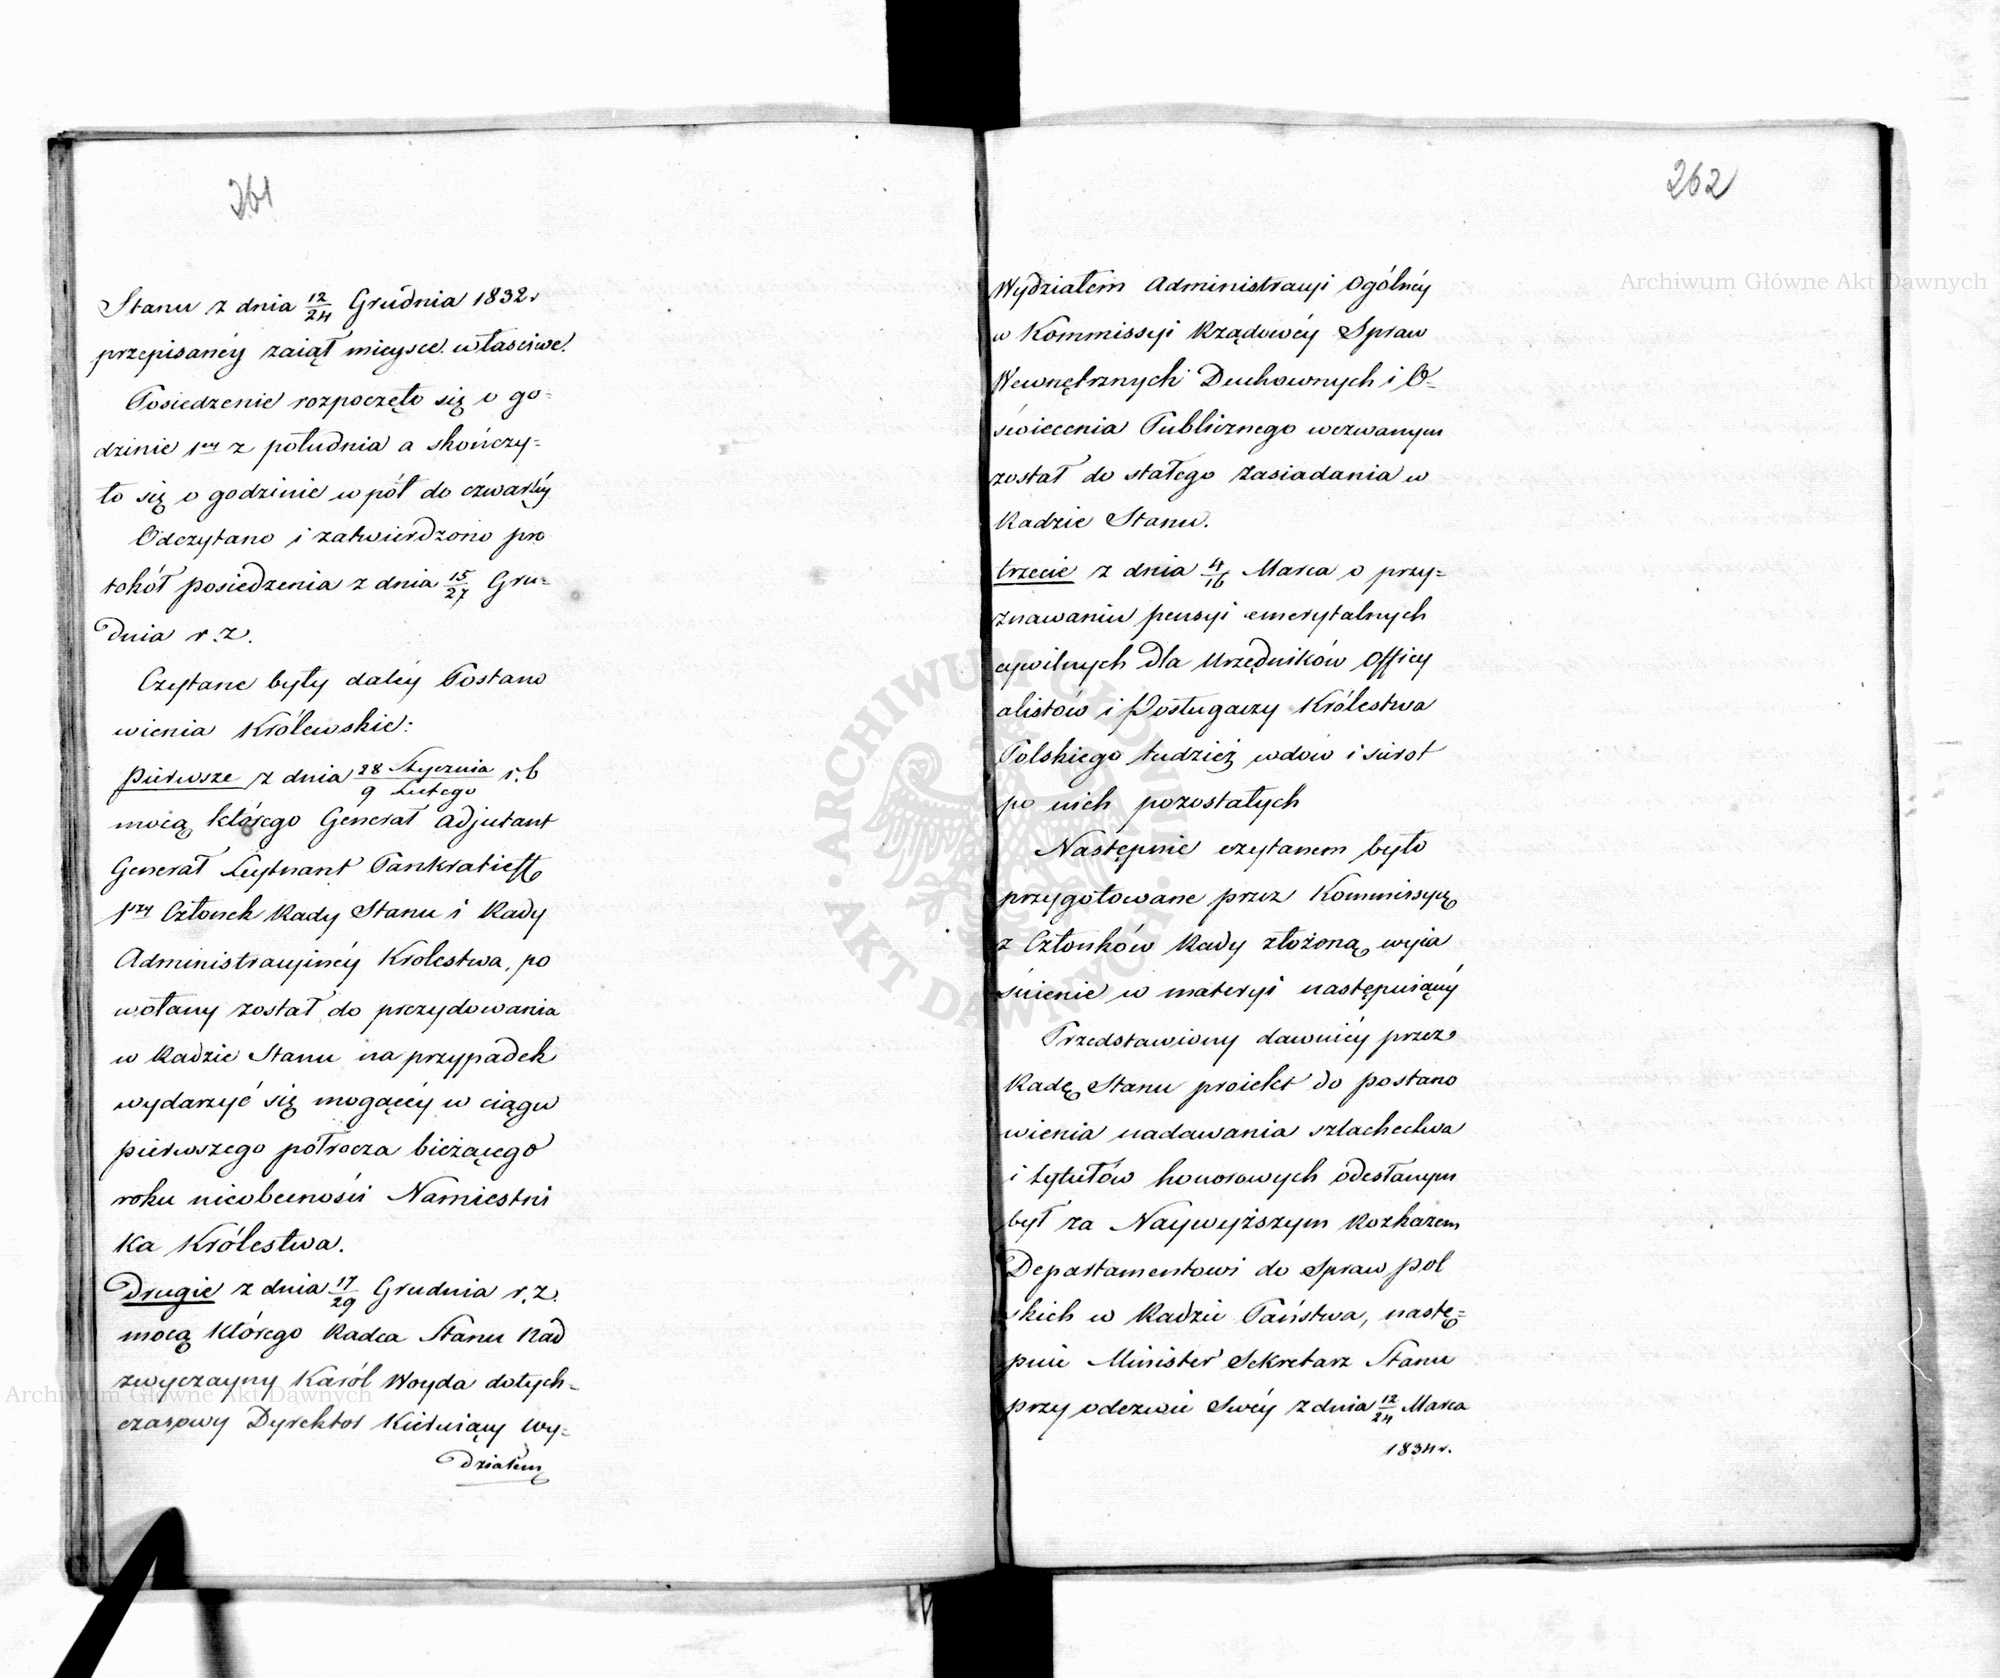 261
Stanu z dnia 12/24 Grudnia 1832 r
przepisanéy zaiął mieysce właściwe.
Posiedzenie rozpoczęło się o go=
dzinie 1ey z południa a skończy=
ło się o godzinie w pół do czwartéy
Odczytano i zatwierdzono pro
tokół posiedzenia z dnia 15/27 Gru=
dnia r. z.
Czytane były daléy Postano
wienia Królewskie:
pierwsze z dnia 28 Stycznia/9 Lutego r. b
mocą którego Generał Adjutant
Generał Leytnant Pankratieff
1szy Członek Rady Stanu i Rady
Administracyinéy Krolestwa, po
wołany został do prezydowania
w Radzie Stanu na przypadek
wydarzyć się mogącéy w ciągu
pierwszego półrocza bieżącego
roku nieobecności Namiestni
ka Królestwa.
Drugie z dnia 17/29 Grudnia r. z.
mocą którego Radca Stanu Nad
zwyczayny Karól Woyda dotych=
czasowy Dyrektor Kieruiący Wy=
działem
262
Wydziałem Administracyi Ogólnéy
w Kommissyi Rządowéy Spraw
Wewnętrznych Duchownych i O=
świecenia Publicznego wezwanym
został do stałego zasiadania w
Radzie Stanu.
trzecie z dnia 4/16 Marca o przy=
znawaniu pensyi emerytalnych
cywilnych dla Urzędników Officy
alistów i Posługaczy Królestwa
Polskiego tudzież wdów i sierot
po nich pozostałych
Następnie czytanem było
przygotowane przez Kommissyą
z Członków Rady złożoną wyia
śnienie w materyi następuiącéy
Przedstawiony dawniéy przez
Radę Stanu proiekt do postano
wienia nadawania szlachectwa
i tytułów honorowych odesłanym
był za Naywyższym Rozkazem
Departamentowi do Spraw pol
skich w Radzie Państwa, nastę=
pnie Minister Sekretarz Stanu
przy odezwie Swéy z dnia 12/24 Marca
1834 r.
Archiwum Główne Akt Dawnych
Archiwum Główne Akt Dawnych
ARCHIWUM GŁÓWNE
AKT DAWNYCH